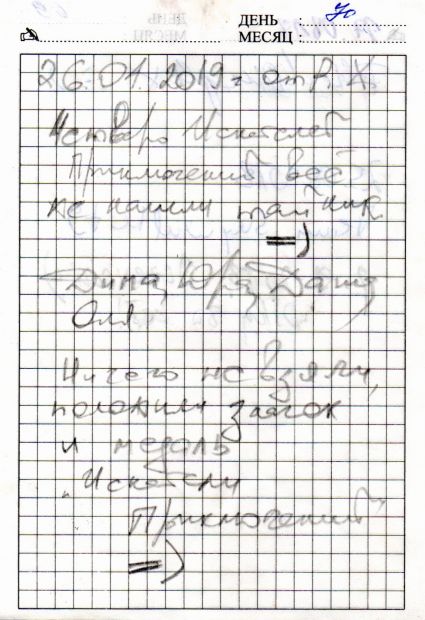 ДЕНЬ : 70
МЕСЯЦ :
26.01.2019 г от Р. Х.
Четверо Искателей
Приключений всё
же нашли тайник
=)
Дина, Юра, Даша,
Оля
Ничего не взяли,
положили значок
и медаль
"Искатели
Приключений"
=)